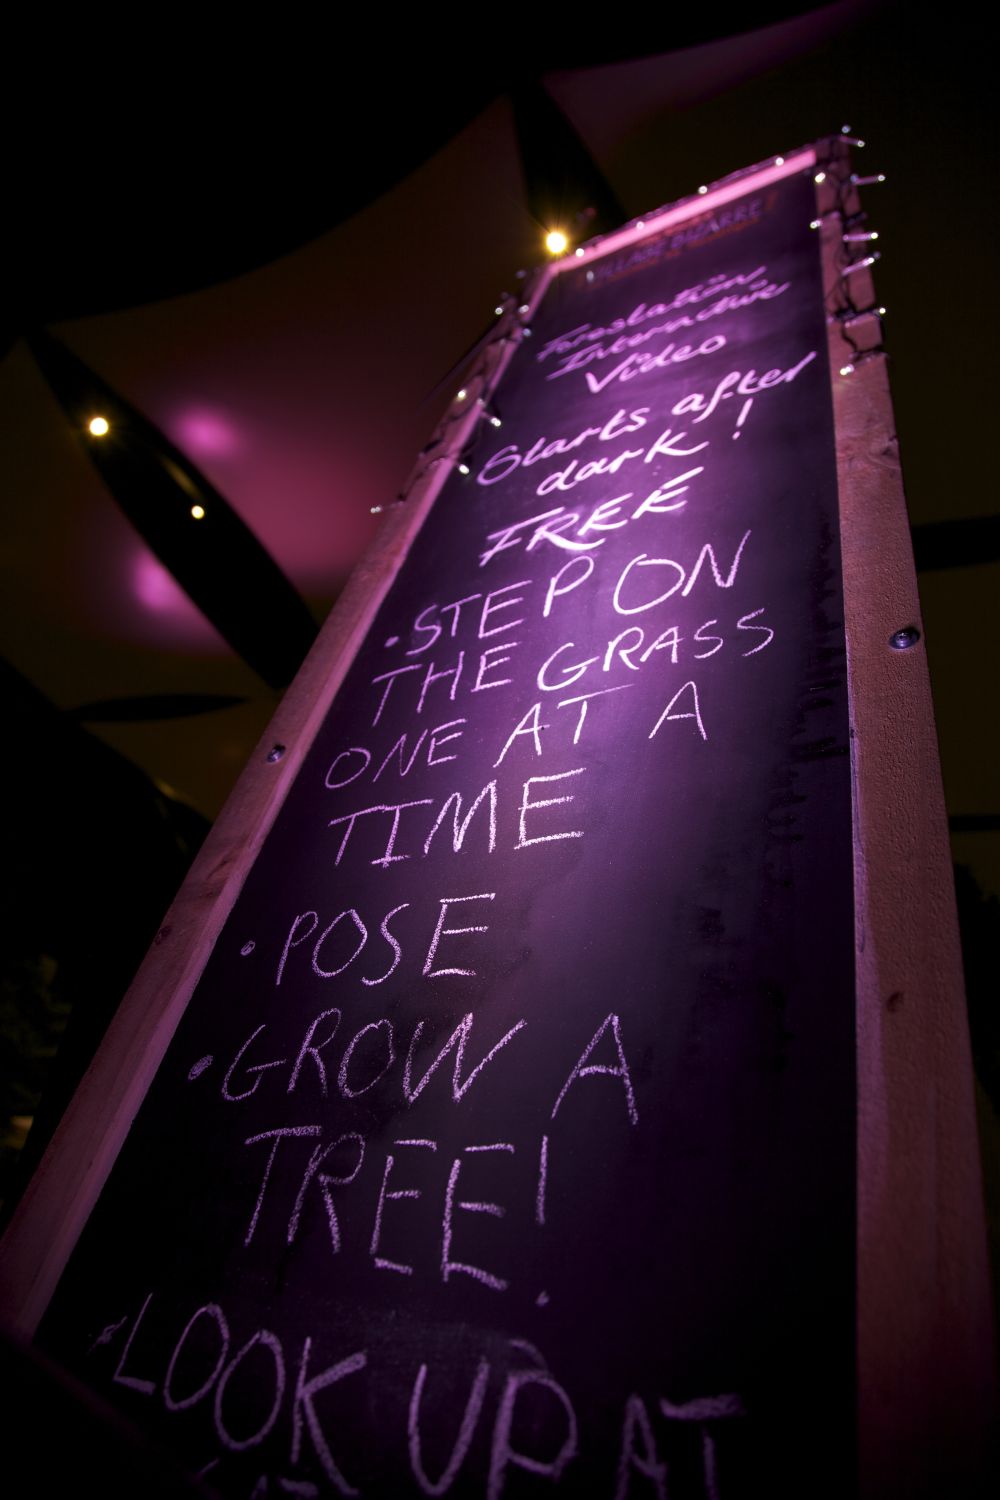 VILLAGE BIZARRE
Foreslation
Interactive
Video
Starts after
dark!
FREE
• STEP ON
THE GRASS
ONE AT A
TIME
• POSE
• GROW A
TREE!
• LOOK UP AT